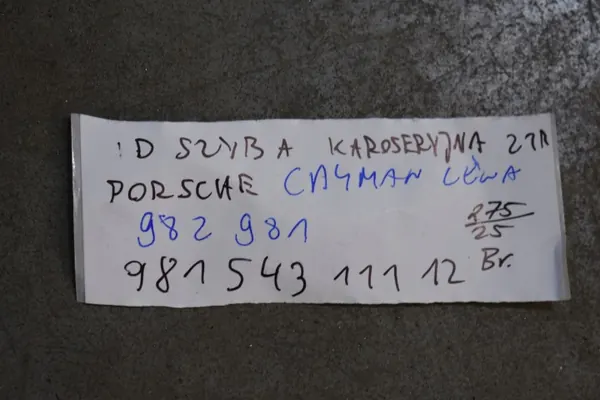 D SZYBA KAROSERYJNA
PORSCHE CAYMAN LEWA
982 981
275
25
981 543 111 12 Br.